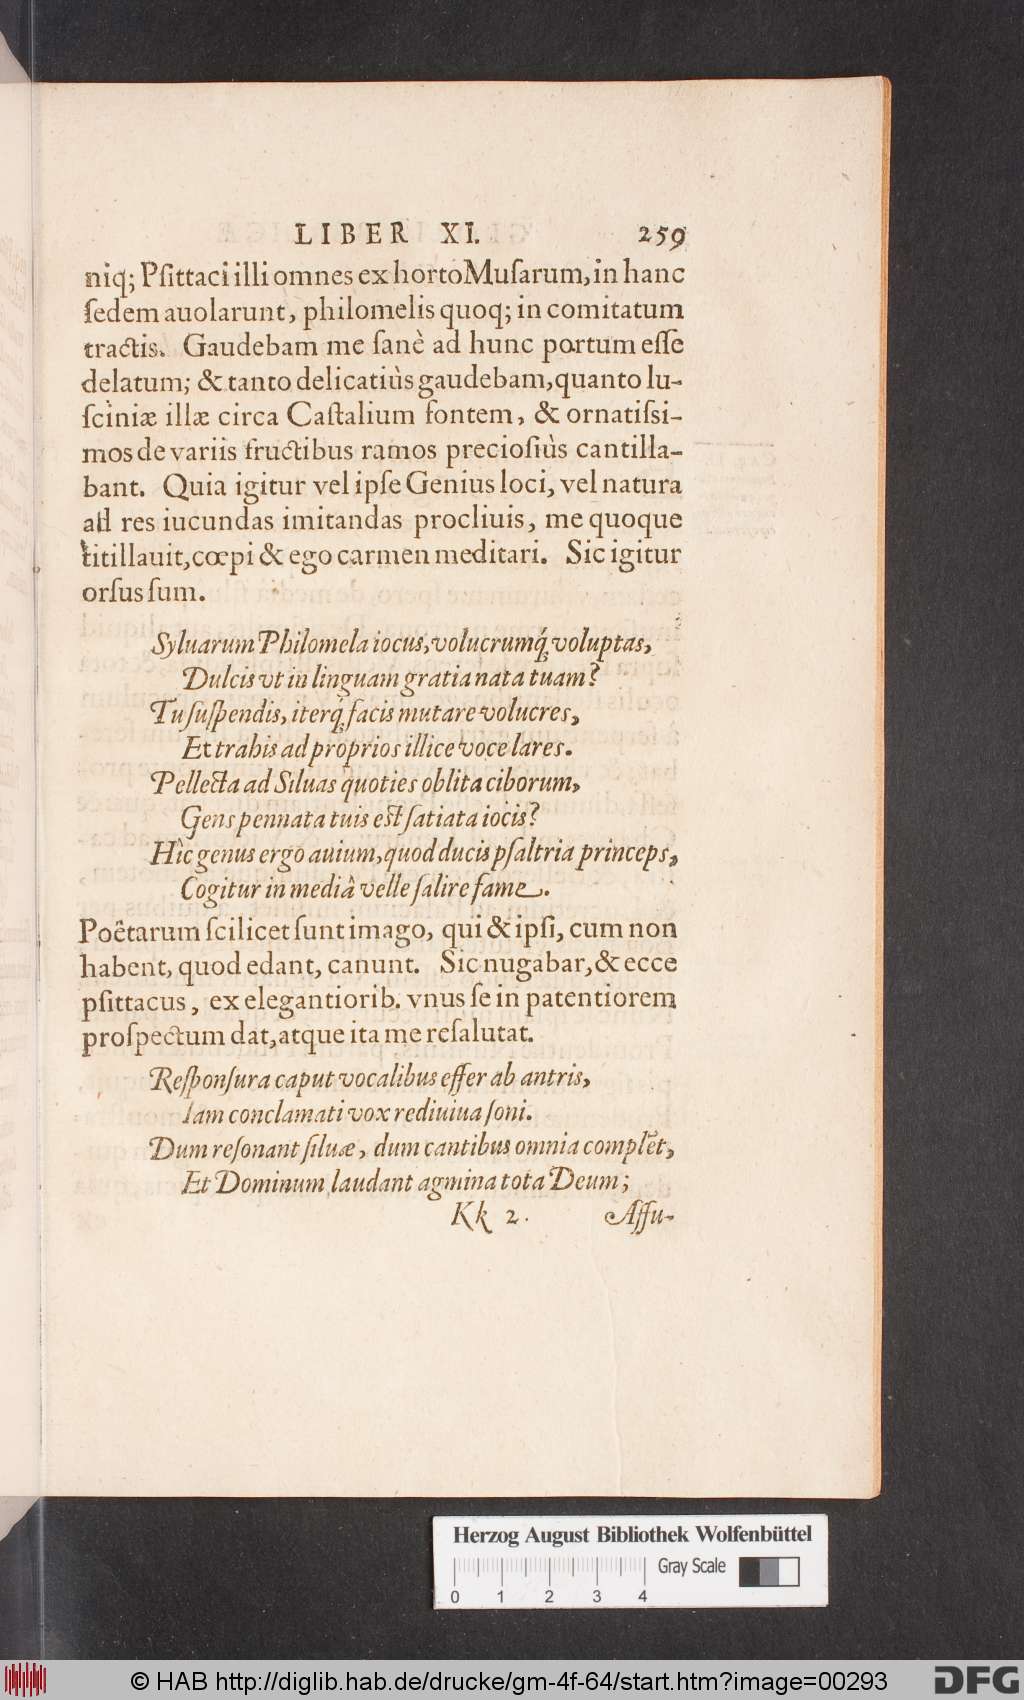 LIBER XI. 259
niq; Pſittaci illi omnes ex horto Muſarum, in hanc
ſedem auolarunt, philomelis quoq; in comitatum
tractis. Gaudebam me ſanè ad hunc portum eſſe
delatum; & tanto delicatiùs gaudebam, quanto lu-
ſciniæ illæ circa Caſtalium fontem, & ornatiſsi-
mos de variis fructibus ramos precioſiùs cantilla-
bant. Quia igitur vel ipſe Genius loci, vel natura
ad res iucundas imitandas procliuis, me quoque
titillauit, cœpi & ego carmen meditari. Sic igitur
orſus ſum.
Syluarum Philomela iocus, volucrumq́; voluptas,
Dulcis vt in linguam gratia nata tuam?
Tu ſuſpendis, iterq́; facis mutare volucres,
Et trahis ad proprios illice voce lares.
Pellecta ad Siluas quoties oblita ciborum,
Gens pennata tuis eſt ſatiata iocis?
Hìc genus ergo auium, quod ducis pſaltria princeps,
Cogitur in mediâ velle ſalire fame.
Poêtarum ſcilicet ſunt imago, qui & ipſi, cum non
habent, quod edant, canunt. Sic nugabar, & ecce
pſittacus, ex elegantiorib. vnus ſe in patentiorem
proſpectum dat, atque ita me reſalutat.
Reſponſura caput vocalibus effer ab antris,
Iam conclamati vox rediuiua ſoni.
Dum reſonant ſiluæ, dum cantibus omnia complẽt,
Et Dominum laudant agmina tota Deum;
Kk 2. Aſſu-
Herzog August Bibliothek Wolfenbüttel
Gray Scale
0 1 2 3 4
© HAB http://diglib.hab.de/drucke/gm-4f-64/start.htm?image=00293 DFG